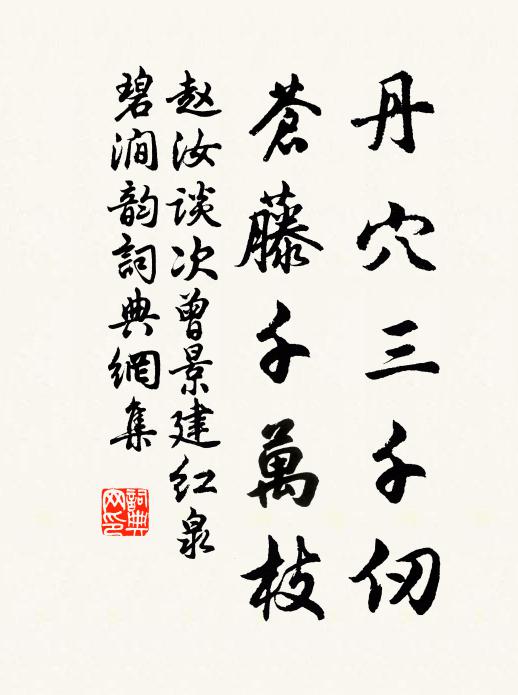 丹穴三千仞
蒼藤千萬枝
赵汝談次曾景建红泉
碧澗韵詞典網集
詞典网印